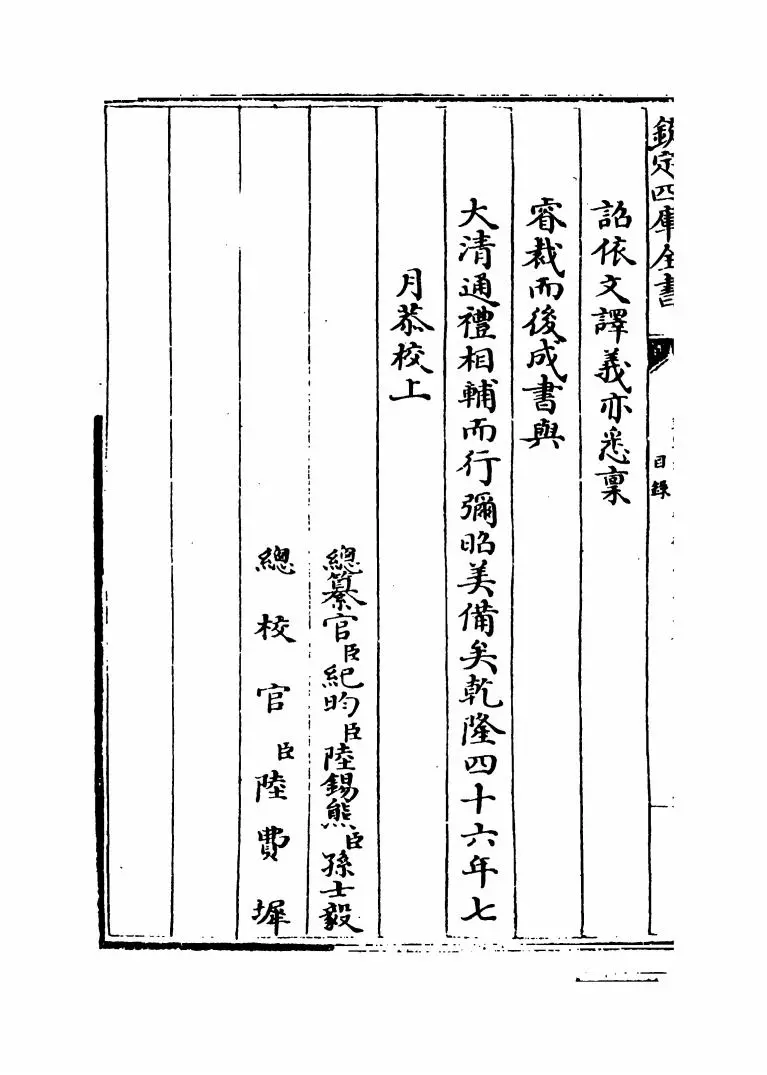 欽定四庫全書
目錄
詔依文譯義亦悉稟
睿裁而後成書與
大清通禮相輔而行彌昭美備矣乾隆四十六年七
月恭校上
總纂官臣紀昀臣陸錫熊臣孫士毅
總校官臣陸費墀